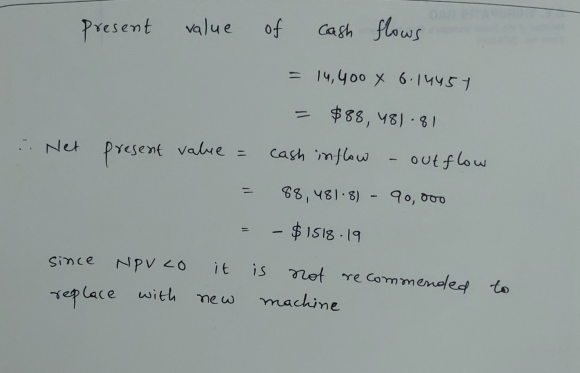 Present value of cash flows
= 14,400 x 6.14457
= $88,481.81
∴ Net present value = cash inflow - outflow
= 88,481.81 - 90,000
= - $1518.19
since NPV <0 it is not recommended to
replace with new machine